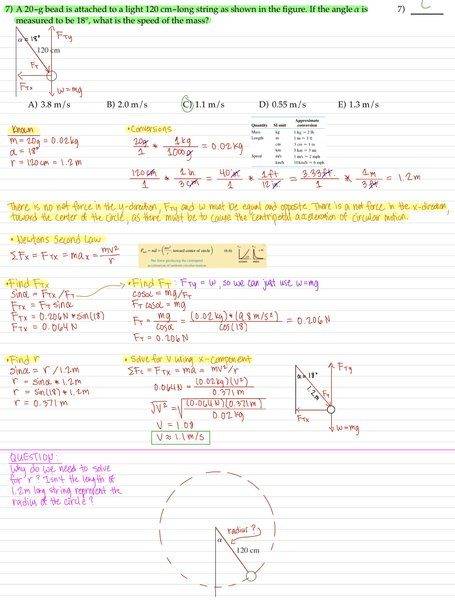 7) A 20-g bead is attached to a light 120 cm-long string as shown in the figure. If the angle α is
measured to be 18°, what is the speed of the mass?
7) C
α = 18°
FTy
120 cm
FT
FTx
w=mg
A) 3.8 m/s B) 2.0 m/s C) 1.1 m/s D) 0.55 m/s E) 1.3 m/s
Known
m = 20g = 0.02kg
α = 18°
r = 120cm = 1.2m
• Conversions
20g/1 * 1kg/1000g = 0.02kg
120cm/1 * 1in/3cm = 40in/1 * 1ft/12in = 3.33ft/1 * 1m/3ft = 1.2m
Quantity SI unit Approximate conversion
Mass kg 1 kg ≈ 2 lb
Length m 1 m ≈ 3 ft
cm 3 cm ≈ 1 in
km
Speed m/s 1 m/s ≈ 2 mph
km/h
There is no net force in the y-direction, FTy and w must be equal and opposite. There is a net force in the x-direction,
toward the center of the circle, as there must be to cause the centripetal acceleration of circular motion.
• Newtons Second Law
ΣFx = FTx = max = mv²/r
• Find FTx
sinα = FTx/FT
FTx = FT sinα
FTx = 0.206N * sin(18)
FTx = 0.064N
• Find FT: FTy = w, so we can just use w=mg
cosα = mg/FT
FT cosα = mg
FT = mg/cosα = (0.02kg)*(9.8m/s²)/cos(18) = 0.206N
FT = 0.206N
• Find r
sinα = r/1.2m
r = sinα * 1.2m
r = sin(18) * 1.2m
r = 0.371m
• Solve for v using x-component
ΣFx = FTx = ma = mv²/r
0.064N = (0.02kg)(v²)/0.371m
√v² = √(0.064N)(0.371m)/0.02kg
v = 1.09
v ≈ 1.1 m/s
α = 18°
FTy
1.2m
FT
FTx
w=mg
QUESTION:
Why do we need to solve
for r? Isn't the length of
1.2m long string represent the
radius of the circle?
radius?
α
120 cm